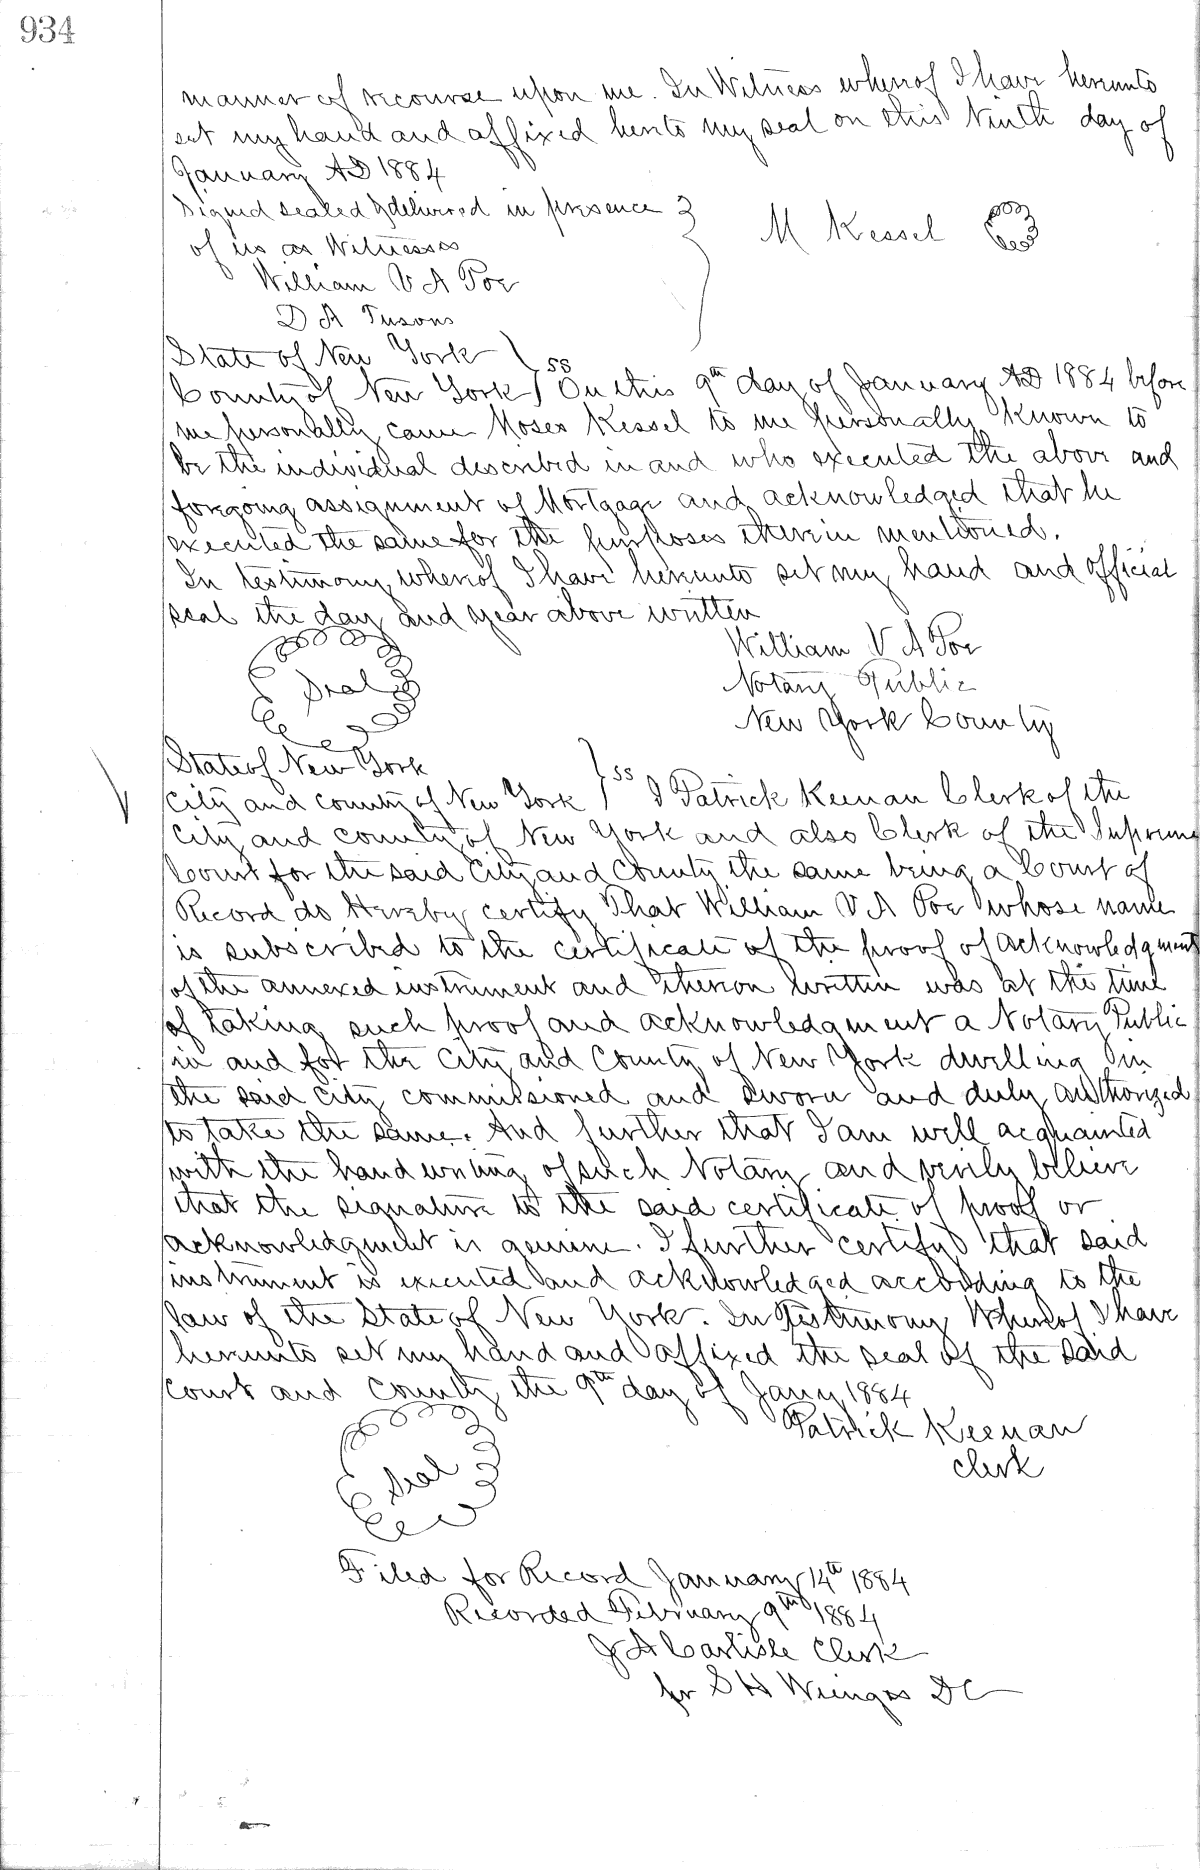 934
manner of recourse upon me. In Witness whereof I have hereunto
set my hand and affixed hereto my seal on this Ninth day of
January AD 1884
Signed sealed & delivered in presence
of us as Witnesses
M Kessel
William V A Poe
D A
State of New York
County of New York ss On this 9th day of January AD 1884 before
me personally came Moses Kessel to me personally known to
be the individual described in and who executed the above and
foregoing assignment of Mortgage and acknowledged that he
executed the same for the purposes therein mentioned.
In testimony whereof I have hereunto set my hand and official
seal the day and year above written
William V A Poe
Seal
Notary Public
New York County
State of New York
City and county of New York ss I Patrick Keenan Clerk of the
City and county of New York and also Clerk of the Supreme
Court for the said City and County the same being a Court of
Record do Hereby certify That William V A Poe whose name
is subscribed to the certificate of the proof of acknowledgment
of the annexed instrument and thereon written was at the time
of taking such proof and acknowledgment a Notary Public
in and for the City and County of New York dwelling in
the said City commissioned and sworn and duly authorized
to take the same. And further that I am well acquainted
with the hand writing of such Notary and verily believe
that the signature to the said certificate of proof or
acknowledgment is genuine. I further certify that said
instrument is executed and acknowledged according to the
law of the State of New York. In Testimony Whereof I have
hereunto set my hand and affixed the seal of the said
court and county the 9th day of Jany 1884
Patrick Keenan
Clerk
Seal
Filed for Record January 14th 1884
Recorded February 9th 1884
J A Carlisle Clerk
for S H DC